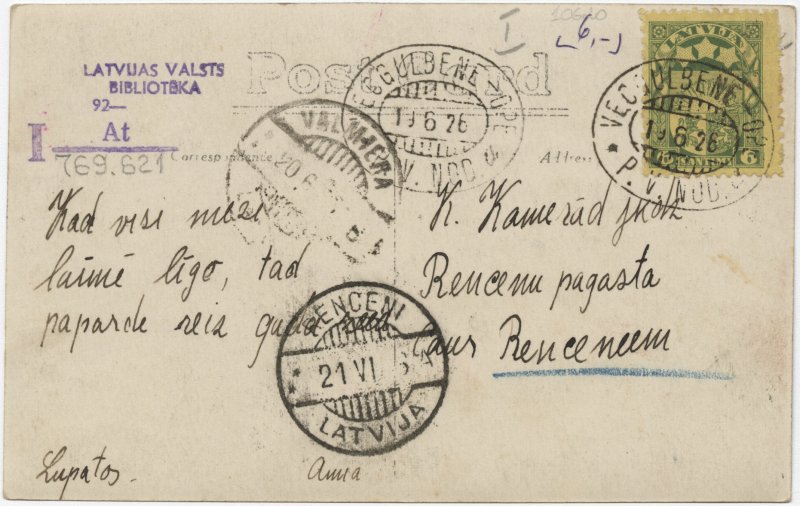 LATVIJAS VALSTS
BIBLIOTĒKA
92—
I At
769.621
Post Card
I
6,-
Correspondence
Address
VECGULBENE
19 6 26
P. V. NOD.
LATVIJA
6
VECGULBENE
19 6 26
P. V. NOD.
VALMIERA
20 6
Kad visi meži
laimē līgo, tad
paparde reiz gada
K. Kamerād
Rencenu pagasta
caur Renceneem
RENCENI
21 VI 6
LATVIJA
Lupatos.
Anna